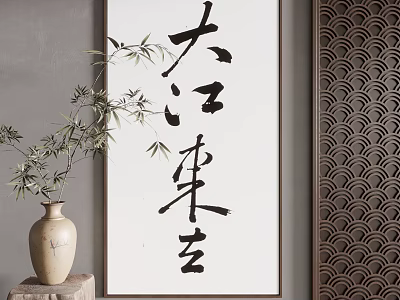 大江東去